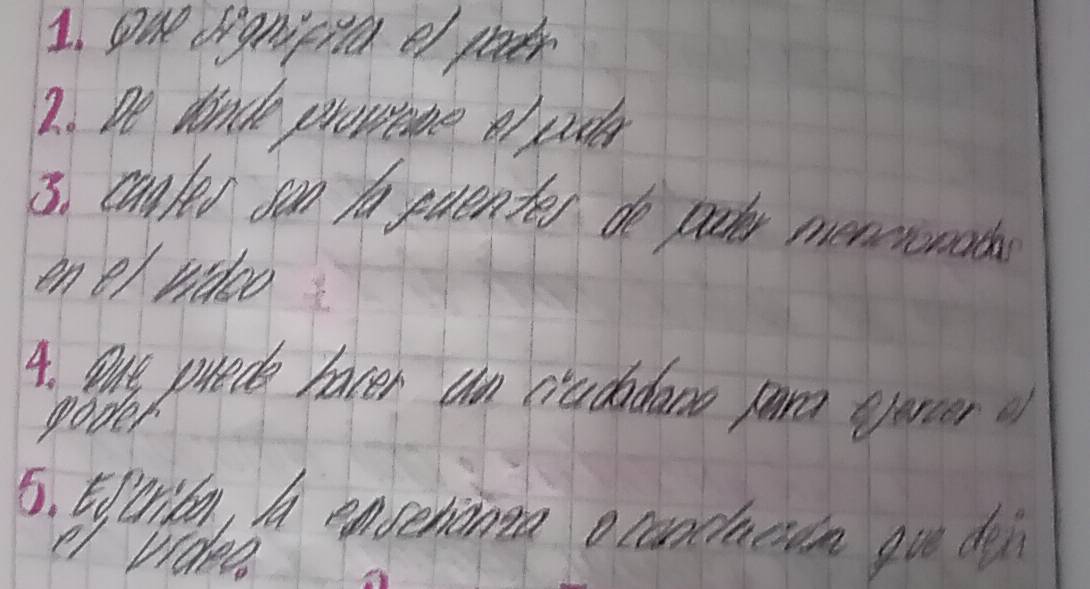 1. Que significa el poder
2. De dónde proviene el poder
3. cuales son la fuentes de poder mencionadas
en el video
4. Que puede hacer un ciudadano para ejercer el
poder
5. Escriba, la enseñanza o conclución que deja
el video.